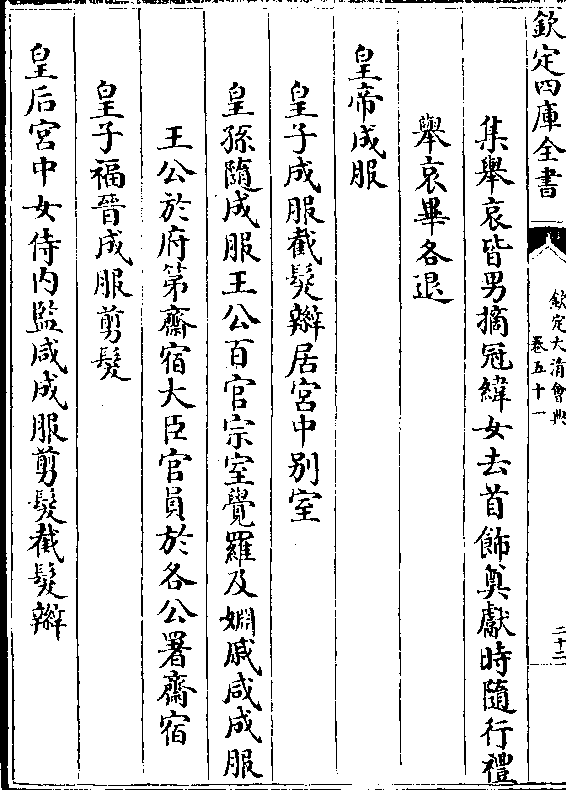 欽定四庫全書
欽定大清會典
卷五十一
二十二
集舉哀皆男摘冠緯女去首飾奠獻時隨行禮
舉哀畢各退
皇帝成服
皇子成服截髮辮居宮中别室
皇孫隨成服王公百官宗室覺羅及婣戚咸成服
王公於府第齋宿大臣官員於各公署齋宿
皇子福晉成服剪髮
皇后宮中女侍内監咸成服剪髮截髮辮